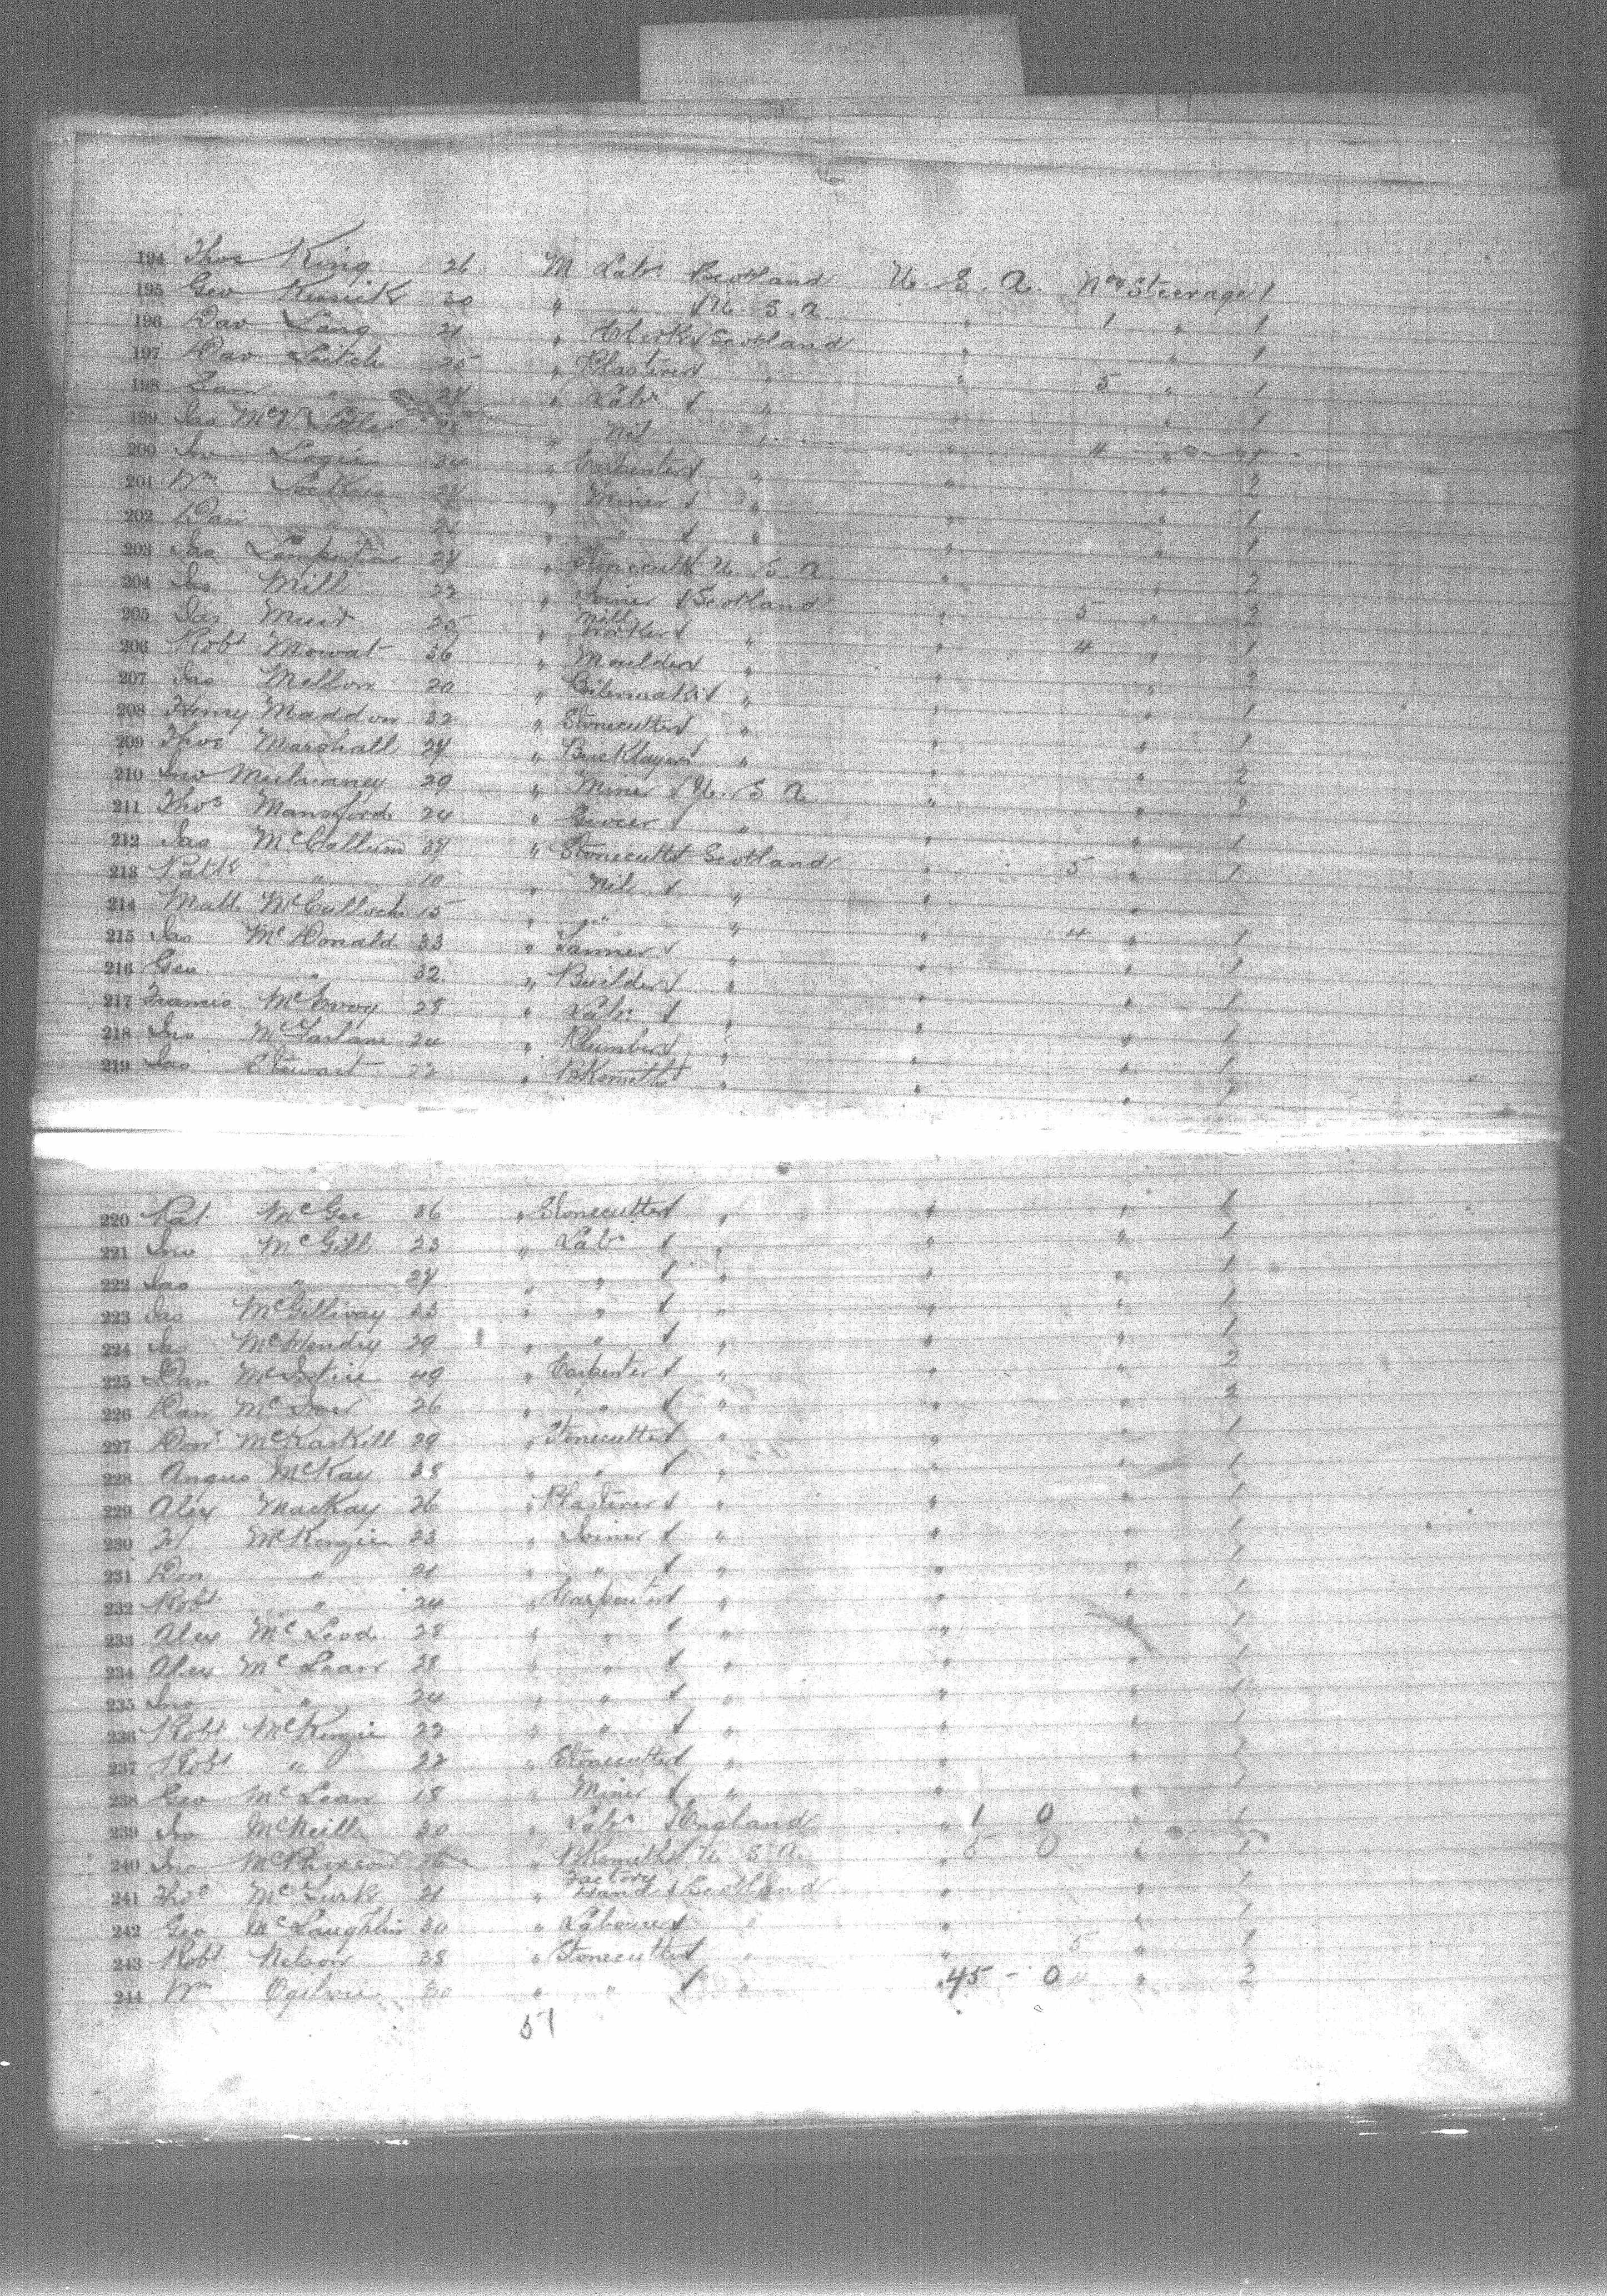 194 Thos King 26 M Labr Scotland U. S. A. No 4 Steerage 1
195 Geo 30 " " U. S. A. " 1 " 1
196 Dav Lang 21 " Clerk Scotland " " 1
197 Dav Leitch 25 " Plasterer " " 5 " 1
198 " 24 " Labr " " 1
199 Jas McV. Little " Nil " " 4 "
200 Jno Logie 34 " Carpenter " " " 2
201 Wm " Miner " " " 1
202 " " " " " 1
203 Jno 24 " Stonecuttr U. S. A. " " 2
204 Jas Mill 22 " Joiner Scotland " 5 " 2
205 Jas Muir 25 " Mill Worker " " 4 " 1
206 Robt Mowat 36 " Moulder " " " 2
207 Jas Mellon 20 " Boilermaker " " " 1
208 Henry Maddon 32 " Stonecutter " " " 1
209 Thos Marshall 24 " Bricklayer " " " 2
210 Jno Mulvaney 29 " Miner U. S. A. " " 2
211 Thos Mansford 24 " Grocer " " " 1
212 Jas McCallum 34 " Stonecutter Scotland " 5 " 1
213 Patk " 10 " Nil " " "
214 Matt McCulloch 15 " " " " 4 " 1
215 Jas McDonald 33 " Tanner " " " 1
216 Geo " 32 " Builder " " " 1
217 Francis McEvoy 28 " Labr " " " 1
218 Jno McFarlane 24 " Plumber " " " 1
219 Jas Stewart 22 " Bksmith " " " 1
220 Pat McGee 36 " Stonecutter " " " 1
221 Jno McGill 23 " Labr " " " 1
222 Jas " 24 " " " " " 1
223 Jas McGillivay 23 " " " " " 1
224 Jas McHendry 29 " " " " " 1
225 Dan McIntire 49 " Carpenter " " " 2
226 Dan McIver 26 " " " " " 2
227 Don McKaskill 29 " Stonecutter " " " 1
228 Angus McKay 38 " " " " " 1
229 Alex MacKay 26 " Plasterer " " " 1
230 McKenzie 23 " Joiner " " " 1
231 Don " 21 " " " " " 1
232 Robt " 24 " Carpenter " " " 1
233 Alex McLeod 28 " " " " " 1
234 Alex McLean 28 " " " " " 1
235 Jno " 24 " " " " " 1
236 Robt McKenzie 22 " " " " " 1
237 Robt " 22 " Stonecutter " " " 1
238 Geo McLean 18 " Miner " " " 1
239 Jno McNeill 30 " Labr England " 1 0 " 1
240 Jno McPherson 26 " Bksmith U. S. A. " 0 " 1
241 Thos McTurk 21 " Factory Hand Scotland " " 1
242 Geo McLaughlin 30 " Labourer " " " 1
243 Robt Nelson 38 " Stonecutter " " 5 " 1
244 Wm Ogilvie 30 " " " 45 - 0 " 2
51